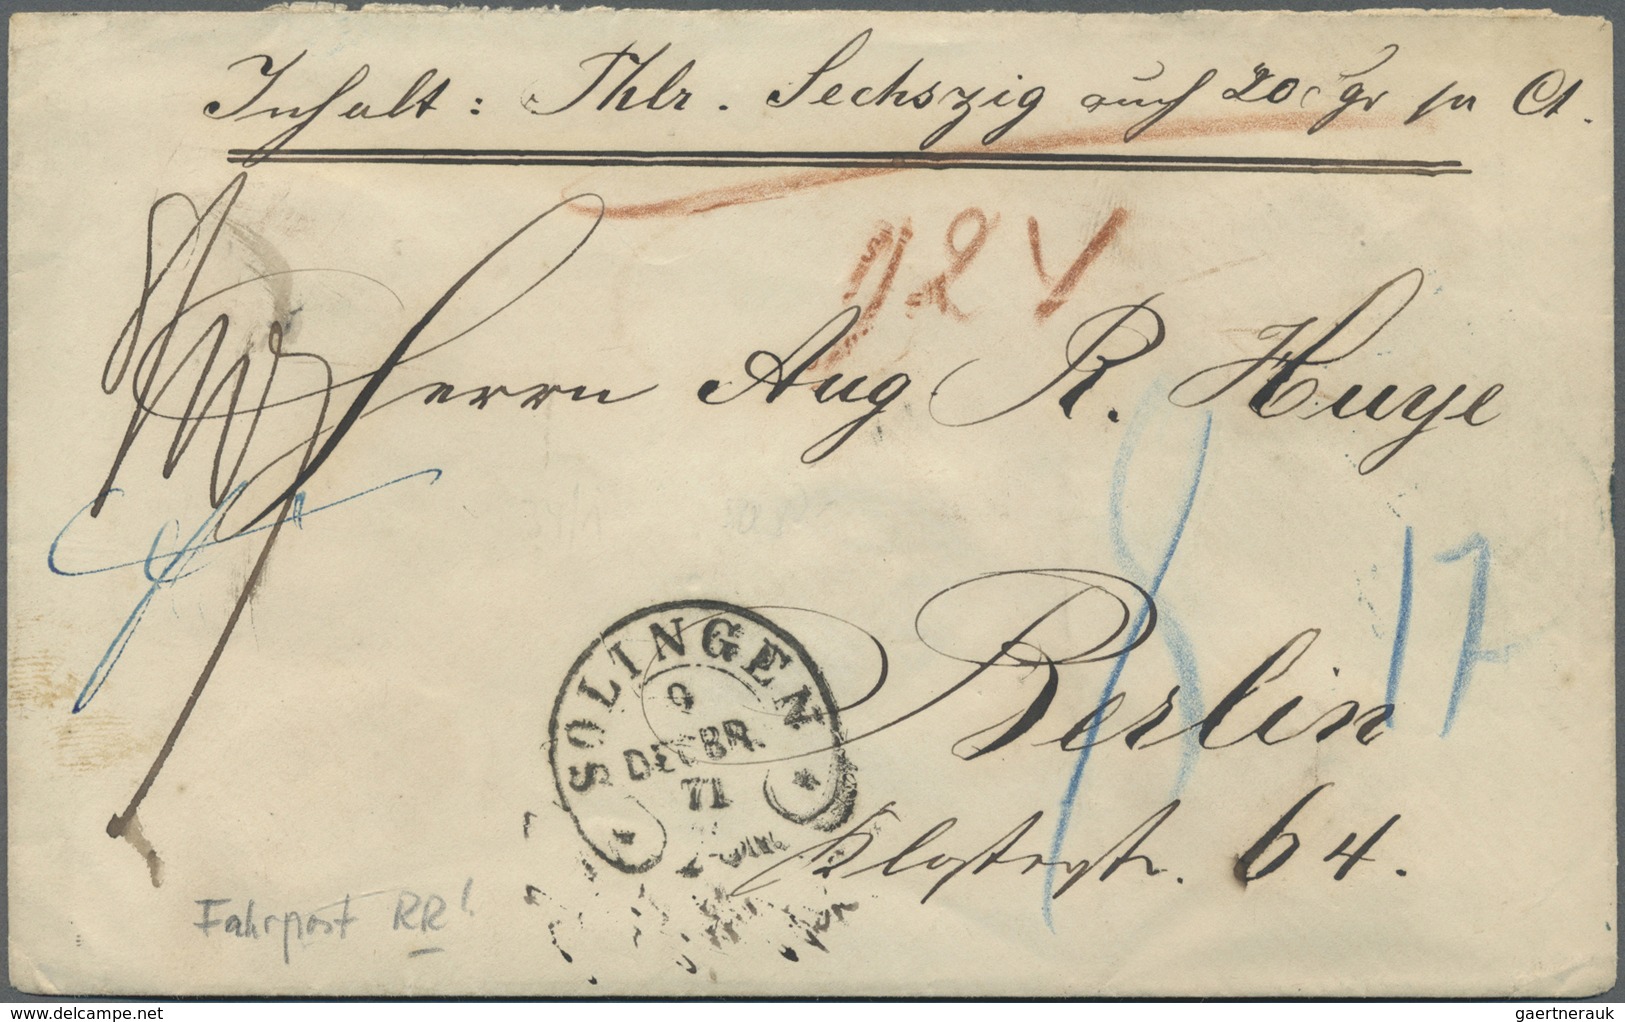 Inhalt: Thlr. Sechszig auch 20 Sgr in Ct.
12 V
Herrn Aug R. Huye
8
17
Berlin
SOLINGEN
9
DECBR.
71
Klosterstr. 64.
Fahrpost RR!
delcampe.net
gaertnerauk